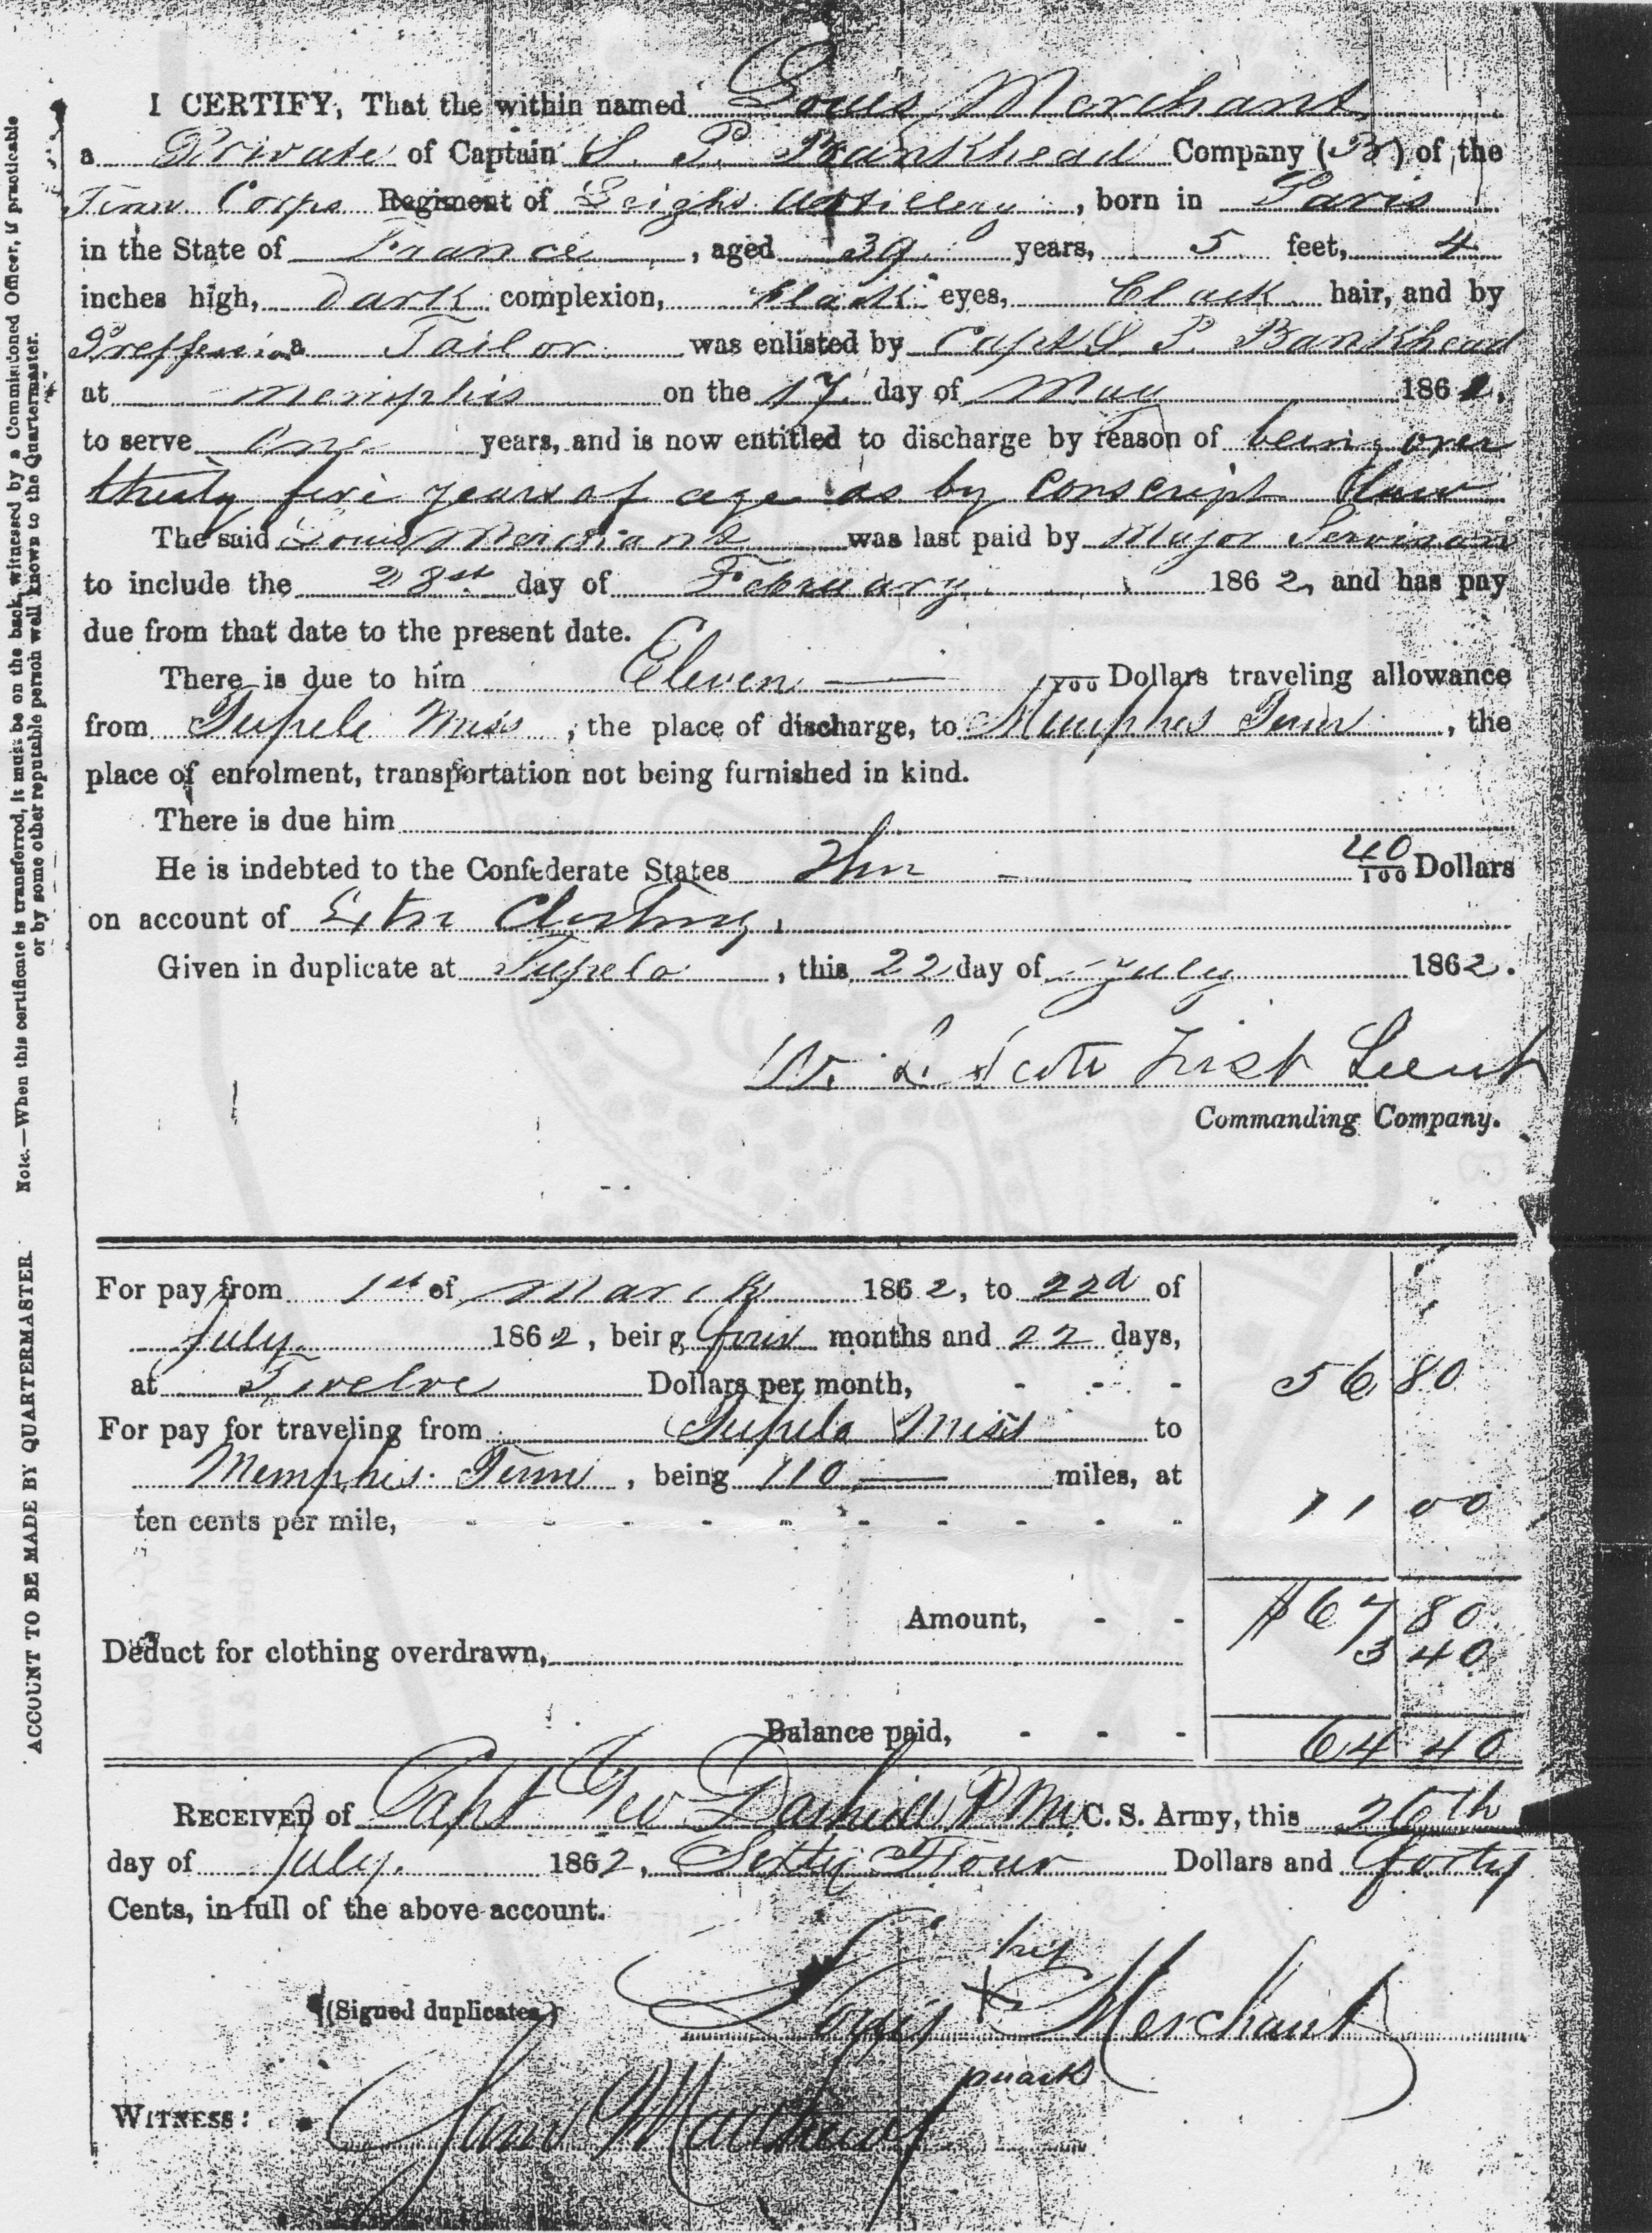 I CERTIFY, That the within named Louis Merchant
a Private of Captain S. P. Bankhead Company (B) of the
Tenn Corps Regiment of Leight Artillery, born in Paris
in the State of France, aged 39 years, 5 feet, 4
inches high, Dark complexion, black eyes, black hair, and by
a Tailor was enlisted by Capt S P. Bankhead
at Memphis on the 17 day of May 1861,
to serve One years, and is now entitled to discharge by reason of being over
thirty five years of age as by Conscript Law
The said Louis Merchant was last paid by Major
to include the 28st day of February 1862, and has pay
due from that date to the present date.
There is due to him Eleven — /100 Dollars traveling allowance
from Tupelo Miss, the place of discharge, to Memphis Tenn, the
place of enrolment, transportation not being furnished in kind.
There is due him
He is indebted to the Confederate States 40/100 Dollars
on account of Clothing,
Given in duplicate at Tupelo, this 22 day of July 1862.
W. L. Scott First Lieut
Commanding Company.
For pay from 1st of March 1862, to 22d of
July 1862, being four months and 22 days,
at Twelve Dollars per month, - - - 56 80
For pay for traveling from Tupelo Miss to
Memphis Tenn, being 110 — miles, at
ten cents per mile, - - - - - - - - - - 11 00
Amount, - - $67 80
Deduct for clothing overdrawn, 3 40
Balance paid, - - - 64 40
RECEIVED of Capt Geo Dashiell P M C. S. Army, this 26th
day of July 1862, Sixty Four Dollars and forty
Cents, in full of the above account.
his
(Signed duplicates) Louis X Merchant
mark
WITNESS: Matthews
Note.—When this certificate is transferred, it must be on the back, witnessed by a Commissioned Officer, if practicable
or by some other reputable person well known to the Quartermaster.
ACCOUNT TO BE MADE BY QUARTERMASTER